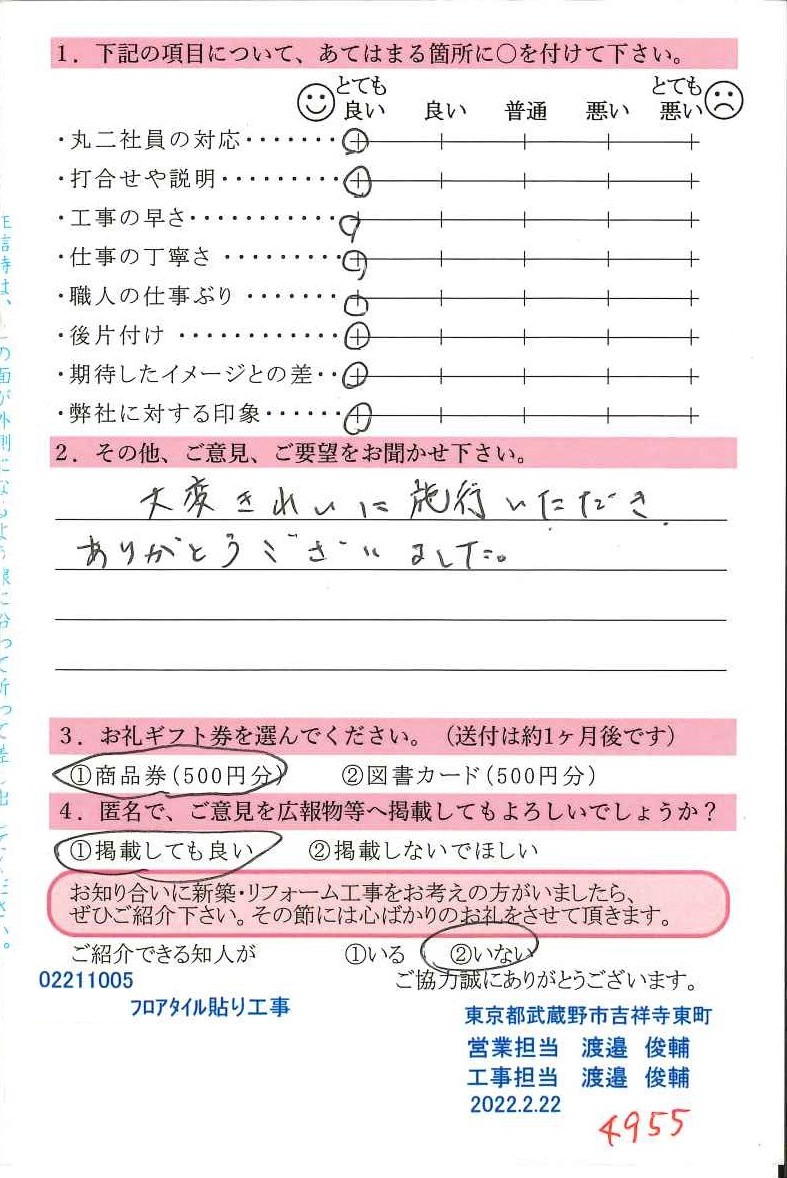 1．下記の項目について、あてはまる箇所に○を付けて下さい。
とても良い 良い 普通 悪い とても悪い
・丸二社員の対応・・・・・・・
・打合せや説明・・・・・・・・・
・工事の早さ・・・・・・・・・・・
・仕事の丁寧さ・・・・・・・・・
・職人の仕事ぶり・・・・・・・
・後片付け・・・・・・・・・・・・
・期待したイメージとの差・・
・弊社に対する印象・・・・・・
2．その他、ご意見、ご要望をお聞かせ下さい。
大変きれいに施行いただき
ありがとうございました。
3．お礼ギフト券を選んでください。（送付は約1ヶ月後です）
①商品券(500円分) ②図書カード(500円分)
4．匿名で、ご意見を広報物等へ掲載してもよろしいでしょうか？
①掲載しても良い ②掲載しないでほしい
お知り合いに新築・リフォーム工事をお考えの方がいましたら、
ぜひご紹介下さい。その節には心ばかりのお礼をさせて頂きます。
ご紹介できる知人が ①いる ②いない
ご協力誠にありがとうございます。
02211005
ﾌﾛｱﾀｲﾙ貼り工事
東京都武蔵野市吉祥寺東町
営業担当 渡邉 俊輔
工事担当 渡邉 俊輔
2022.2.22
4955